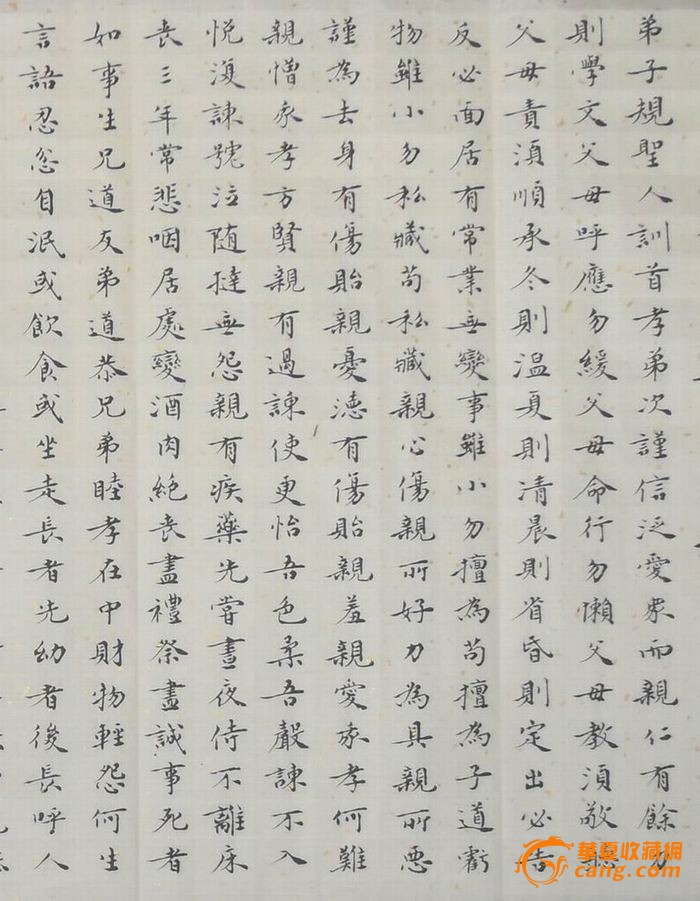 弟子規聖人訓首孝弟次謹信泛愛眾而親仁有餘力
則學文父母呼應勿緩父母命行勿懶父母教須敬聽
父母責須順承冬則温夏則清晨則省昏則定出必告
反必面居有常業無變事雖小勿擅為苟擅為子道虧
物雖小勿私藏苟私藏親心傷親所好力為具親所惡
謹為去身有傷貽親憂德有傷貽親羞親愛我孝何難
親憎我孝方賢親有過諫使更怡吾色柔吾聲諫不入
悅復諫號泣随撻無怨親有疾藥先嘗晝夜侍不離床
喪三年常悲咽居處變酒肉絕喪盡禮祭盡誠事死者
如事生兄道友弟道恭兄弟睦孝在中財物輕怨何生
言語忍忿自泯或飲食或坐走長者先幼者後長呼人
華夏收藏网
cang.com